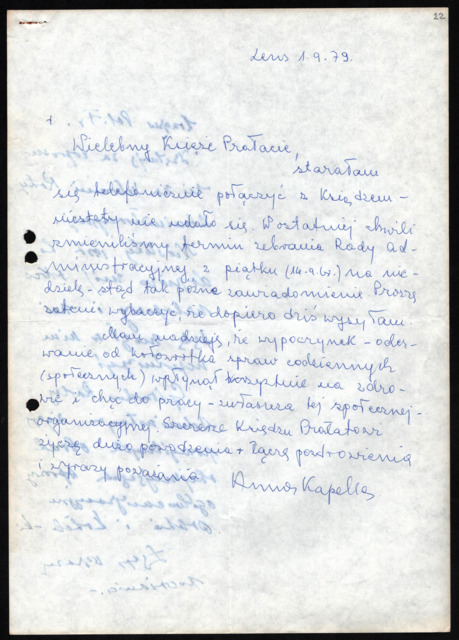 22
Lens 1.9.79.
+
Wielebny Księże Prałacie,
starałam
się telefonicznie połączyć z Księdzem -
niestety nie udało się. W ostatniej chwili
zmieniliśmy termin zebrania Rady ad-
ministracyjnej z piątku (14.9.br.) na nie-
dzielę - stąd tak późne zawiadomienie. Proszę
zatem wybaczyć że dopiero dziś wysyłam.
Mam nadzieję, że wypoczynek - oder-
wanie od kołowrotka spraw codziennych
(społecznych) wpłynął korzystnie na zdro-
wie i chęć do pracy - zwłaszcza tej społecznej -
organizacyjnej. Szczerze Księdzu Prałatowi
życzę dużo powodzenia + łączę pozdrowienia
i wyrazy poważania
Anna Kapella